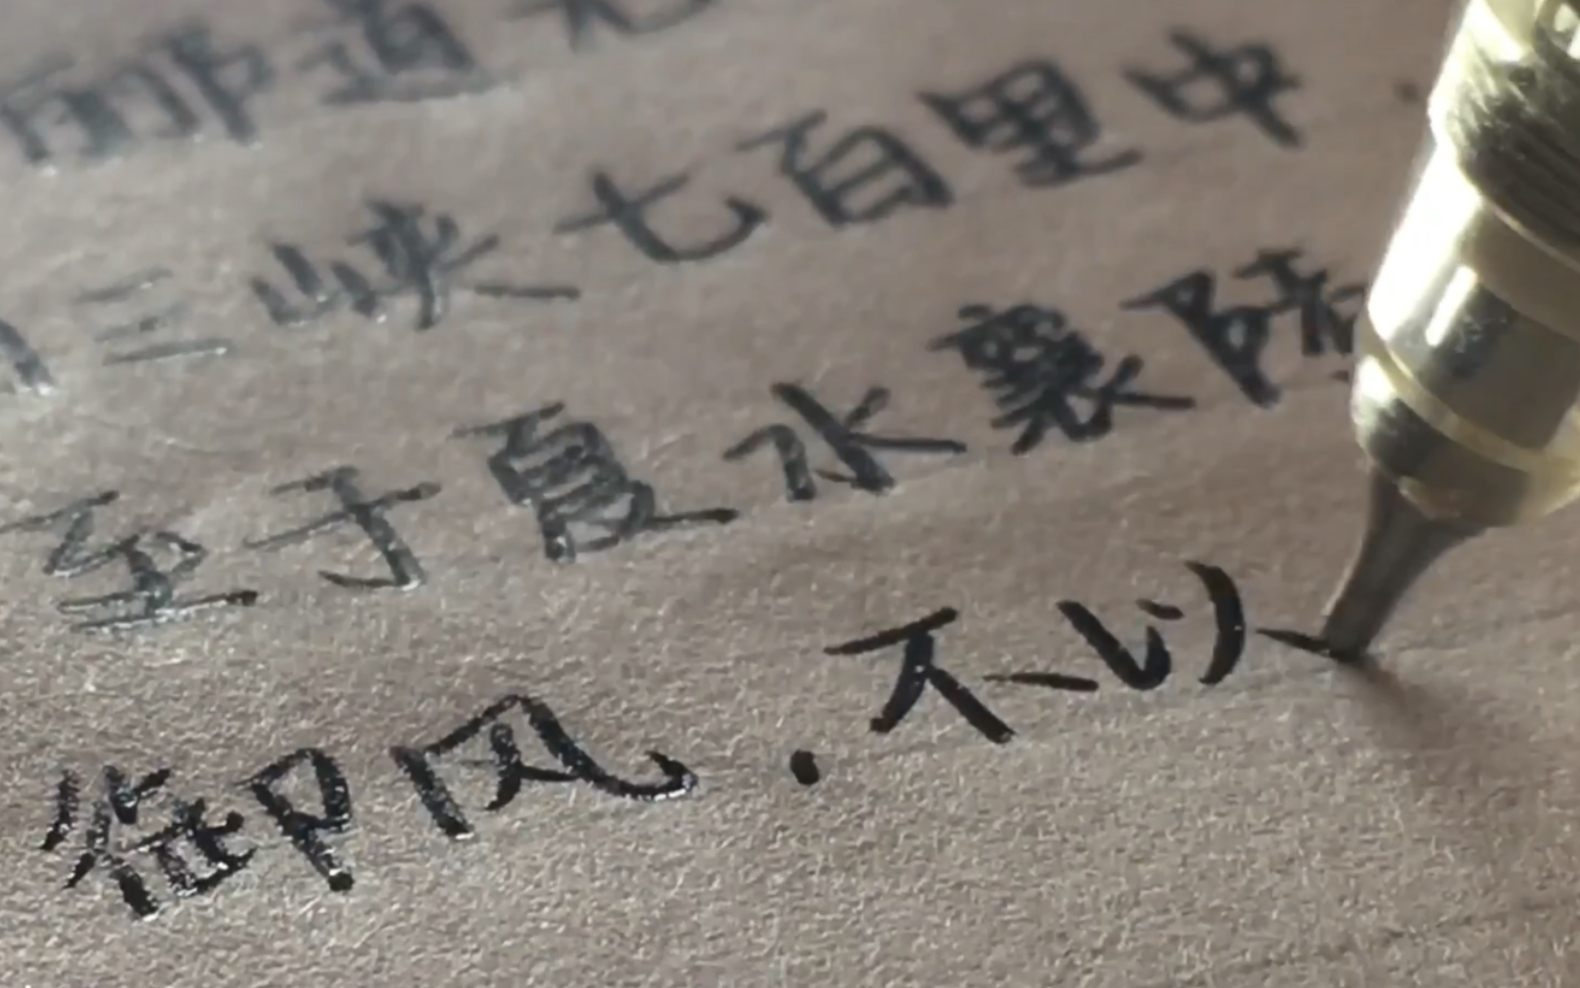 郦道元
三峡七百里中
至于夏水襄陵
御风.不以